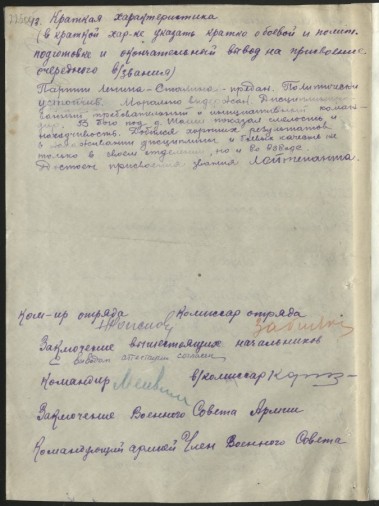 12. Краткая характеристика
(в краткой хар-ке указать кратко о боевой и полит.
подготовке и окончательный вывод на присвоение
очередного в/звания)
Партии Ленина-Сталина - предан. Политически
устойчив. Морально выдержан.
требовательный и инициативный
В бою под д. показал смелость и
находчивость. Добился хороших результатов
в дисциплины и боевых качеств не
только в своем отделении, но и во взводе.
Достоин присвоения звания Лейтенанта.
Ком-ир отряда Комиссар отряда
Заключение вышестоящих начальников
с выводом аттестации согласен
Командир в/комиссар
Заключение Военного Совета Армии
Командующий армией Член Военного Совета